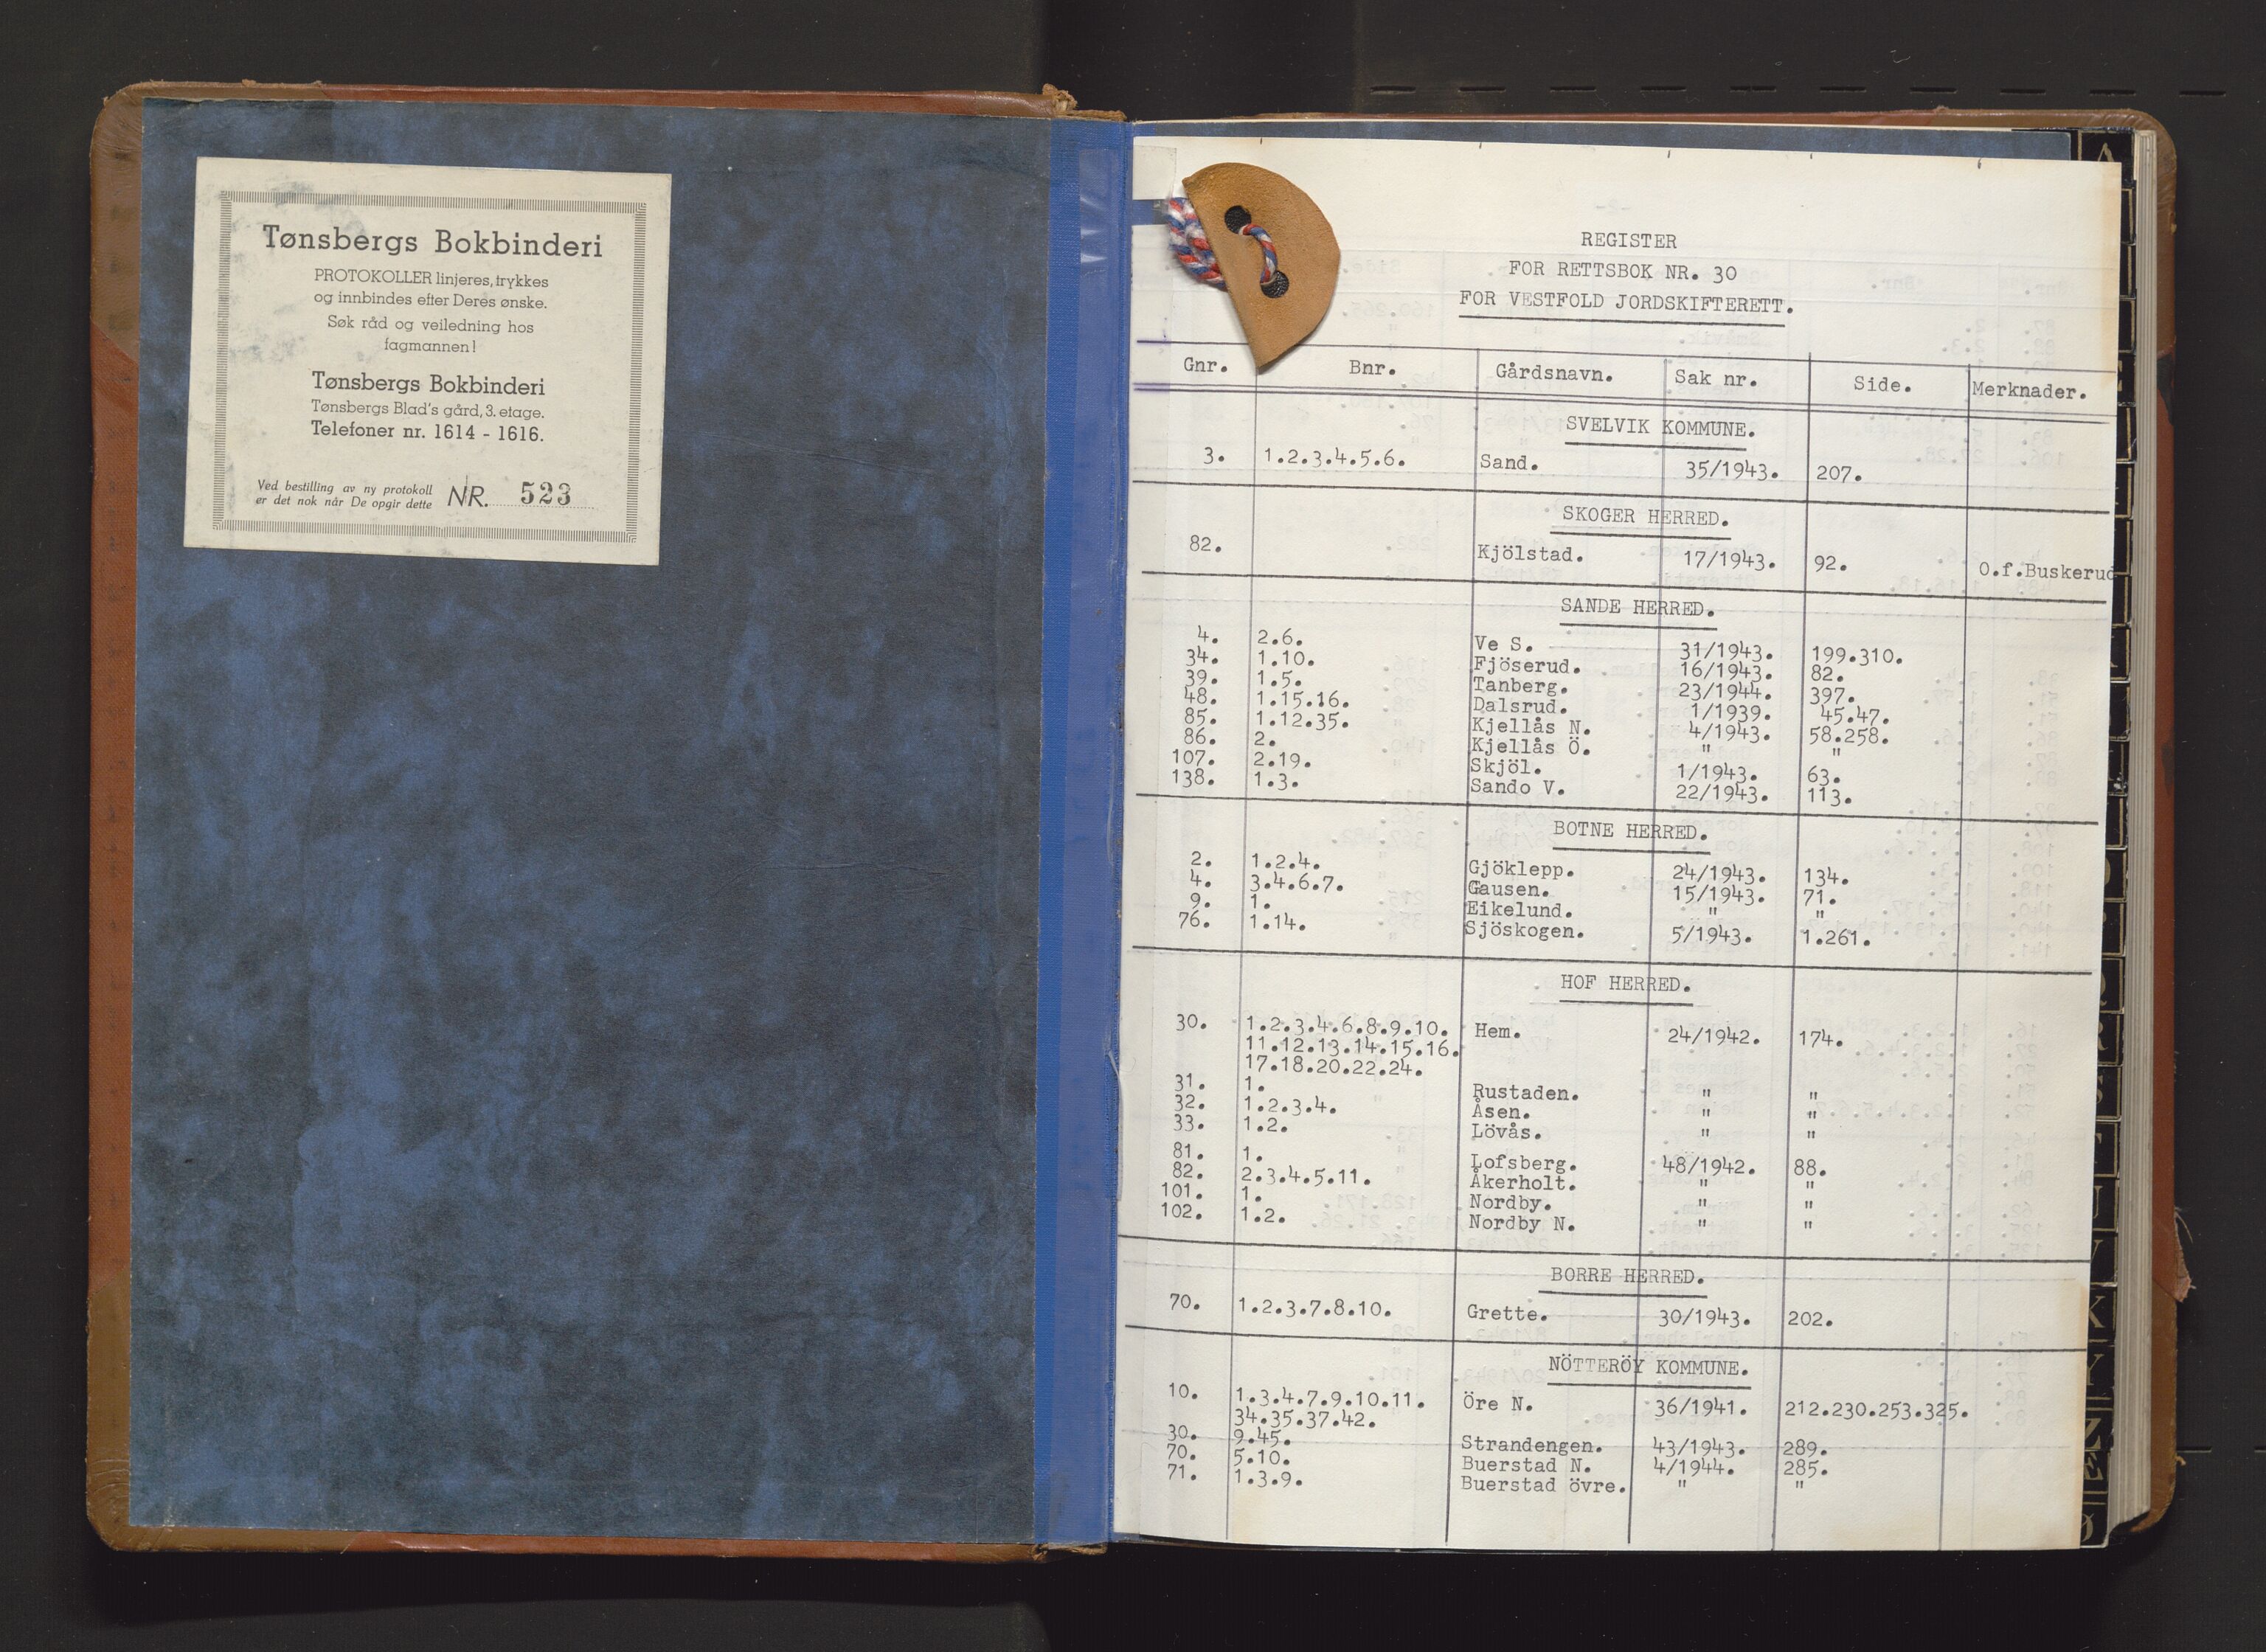 Tønsbergs Bokbinderi
PROTOKOLLER linjeres, trykkes
og innbindes efter Deres ønske.
Søk råd og veiledning hos
fagmannen!
Tønsbergs Bokbinderi
Tønsbergs Blad's gård, 3. etage.
Telefoner nr. 1614 - 1616.
Ved bestilling av ny protokoll
er det nok når De opgir dette NR. 523
REGISTER
FOR RETTSBOK NR. 30
FOR VESTFOLD JORDSKIFTERETT.
Gnr. Bnr. Gårdsnavn. Sak nr. Side. Merknader.
SVELVIK KOMMUNE.
3. 1.2.3.4.5.6. Sand. 35/1943. 207.
SKOGER HERRED.
82. Kjölstad. 17/1943. 92. O.f.Buskerud
SANDE HERRED.
4. 2.6. Ve S. 31/1943. 199.310.
34. 1.10. Fjöserud. 16/1943. 82.
39. 1.5. Tanberg. 23/1944. 397.
48. 1.15.16. Dalsrud. 1/1939. 45.47.
85. 1.12.35. Kjellås N. 4/1943. 58.258.
86. 2. Kjellås Ö. " "
107. 2.19. Skjöl. 1/1943. 63.
138. 1.3. Sando V. 22/1943. 113.
BOTNE HERRED.
2. 1.2.4. Gjöklepp. 24/1943. 134.
4. 3.4.6.7. Gausen. 15/1943. 71.
9. 1. Eikelund. " "
76. 1.14. Sjöskogen. 5/1943. 1.261.
HOF HERRED.
30. 1.2.3.4.6.8.9.10. Hem. 24/1942. 174.
11.12.13.14.15.16.
17.18.20.22.24.
31. 1. Rustaden. " "
32. 1.2.3.4. Åsen. " "
33. 1.2. Lövås. " "
81. 1. Lofsberg. 48/1942. 88.
82. 2.3.4.5.11. Åkerholt. " "
101. 1. Nordby. " "
102. 1.2. Nordby N. " "
BORRE HERRED.
70. 1.2.3.7.8.10. Grette. 30/1943. 202.
NÖTTERÖY KOMMUNE.
10. 1.3.4.7.9.10.11. Öre N. 36/1941. 212.230.253.325.
34.35.37.42.
30. 9.45. Strandengen. 43/1943. 289.
70. 5.10. Buerstad N. 4/1944. 285.
71. 1.3.9. Buerstad övre. " "